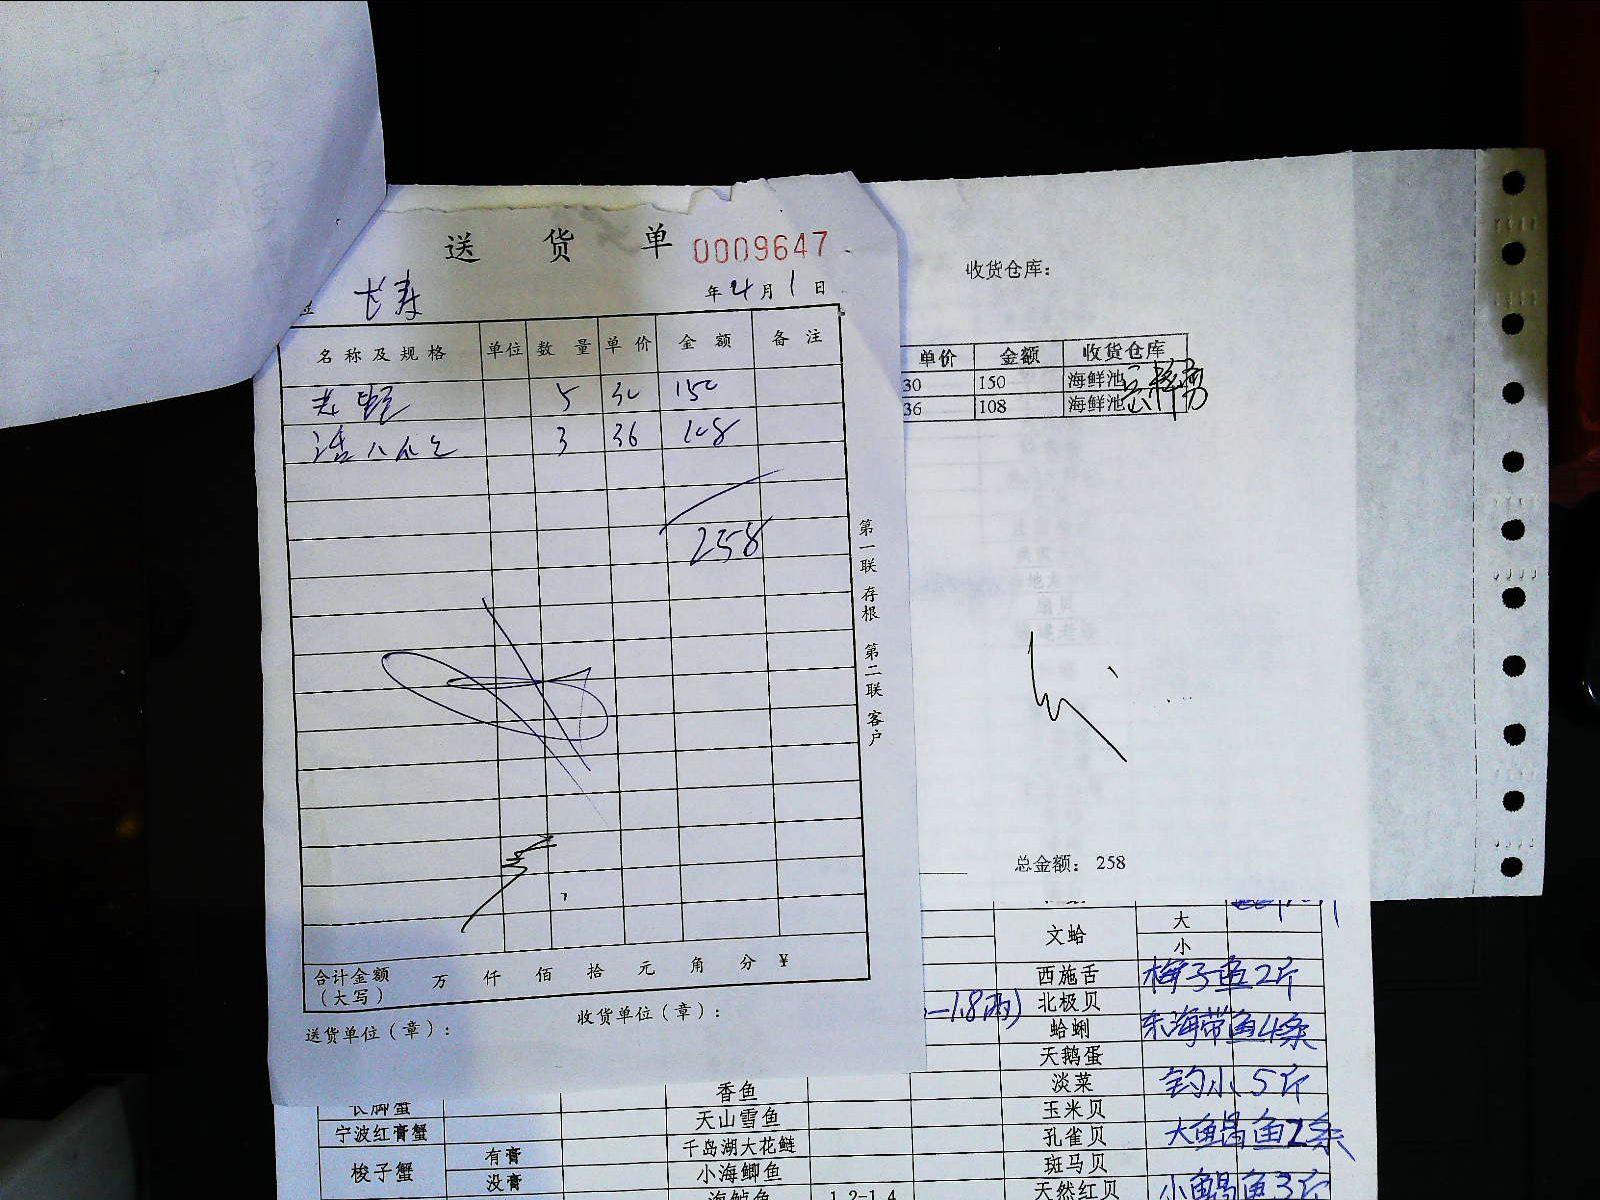 送 货 单 0009647
长寿 年 4月 1 日
名称及规格 单位 数量 单价 金额 备注
5 30 150
活八爪 3 36 108
258
第一联 存根 第二联 客户
合计金额（大写） 万 仟 佰 拾 元 角 分 ¥
送货单位（章）： 收货单位（章）：
收货仓库：
单价 金额 收货仓库
30 150 海鲜池
36 108 海鲜池
总金额： 258
文蛤 大
小
西施舌 梅子鱼2斤
-1.8两) 北极贝
蛤蜊 东海带鱼4条
天鹅蛋
香鱼 淡菜 钓小5斤
长脚蟹 天山雪鱼 玉米贝
宁波红膏蟹 千岛湖大花鲢 孔雀贝 大鲳鱼2条
梭子蟹 有膏 小海鲫鱼 斑马贝
没膏 海鲈鱼 1.2-1.4 天然红贝 小鲳鱼3斤